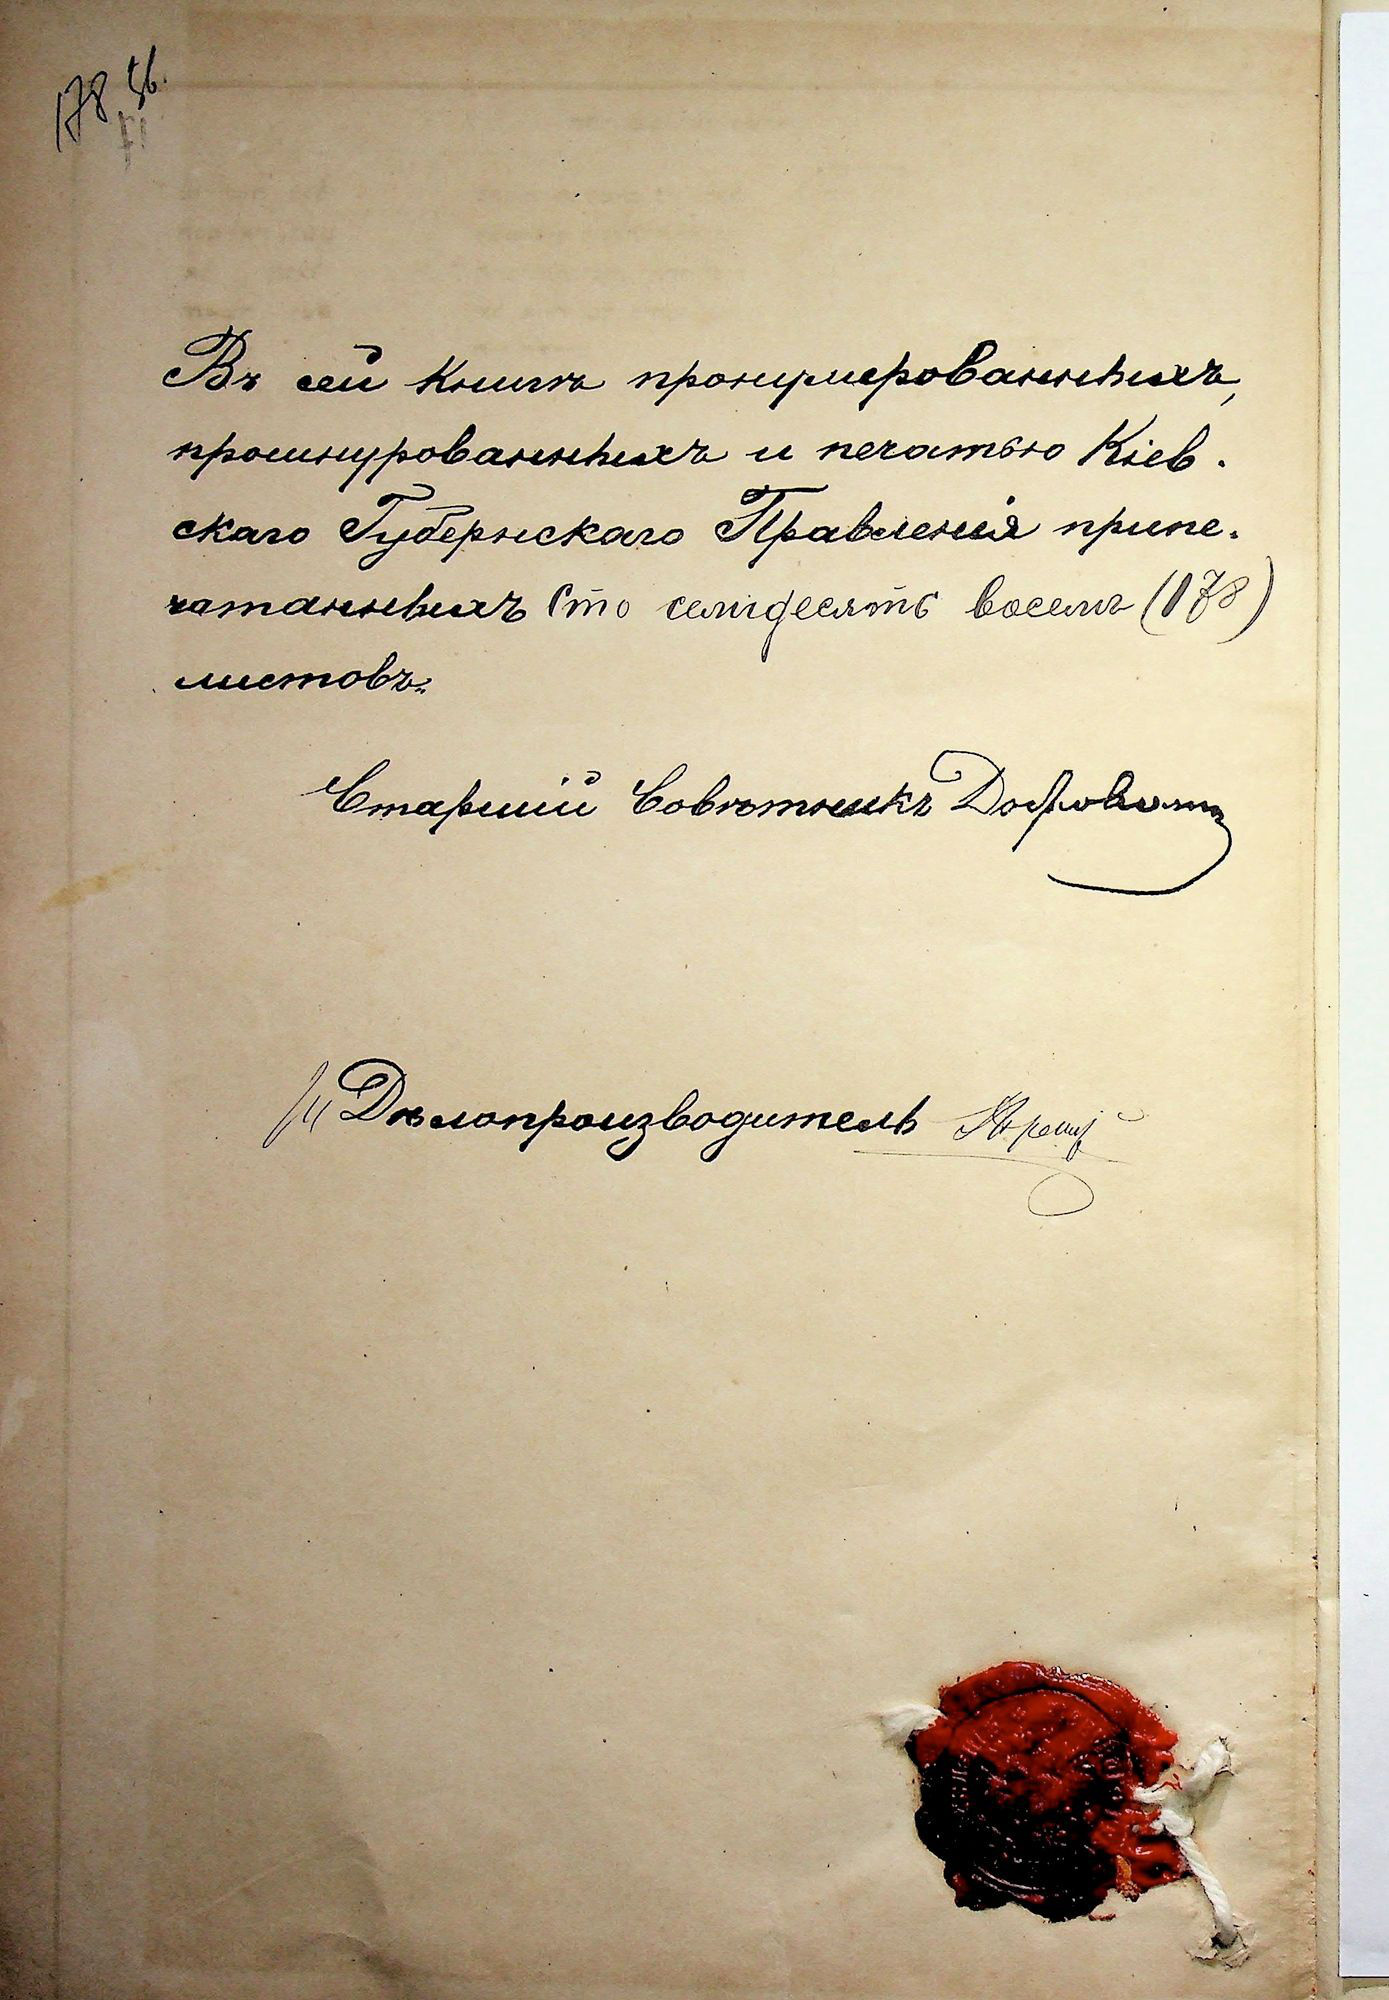 178 56.
Въ сей книгѣ пронумерованныхъ,
прошнурованныхъ и печатью Кіев-
скаго Губернскаго Правленія припе-
чатанныхъ Сто семидесять восемь (178)
листовъ.
Старшій Совѣтникъ
Дѣлопроизводитель